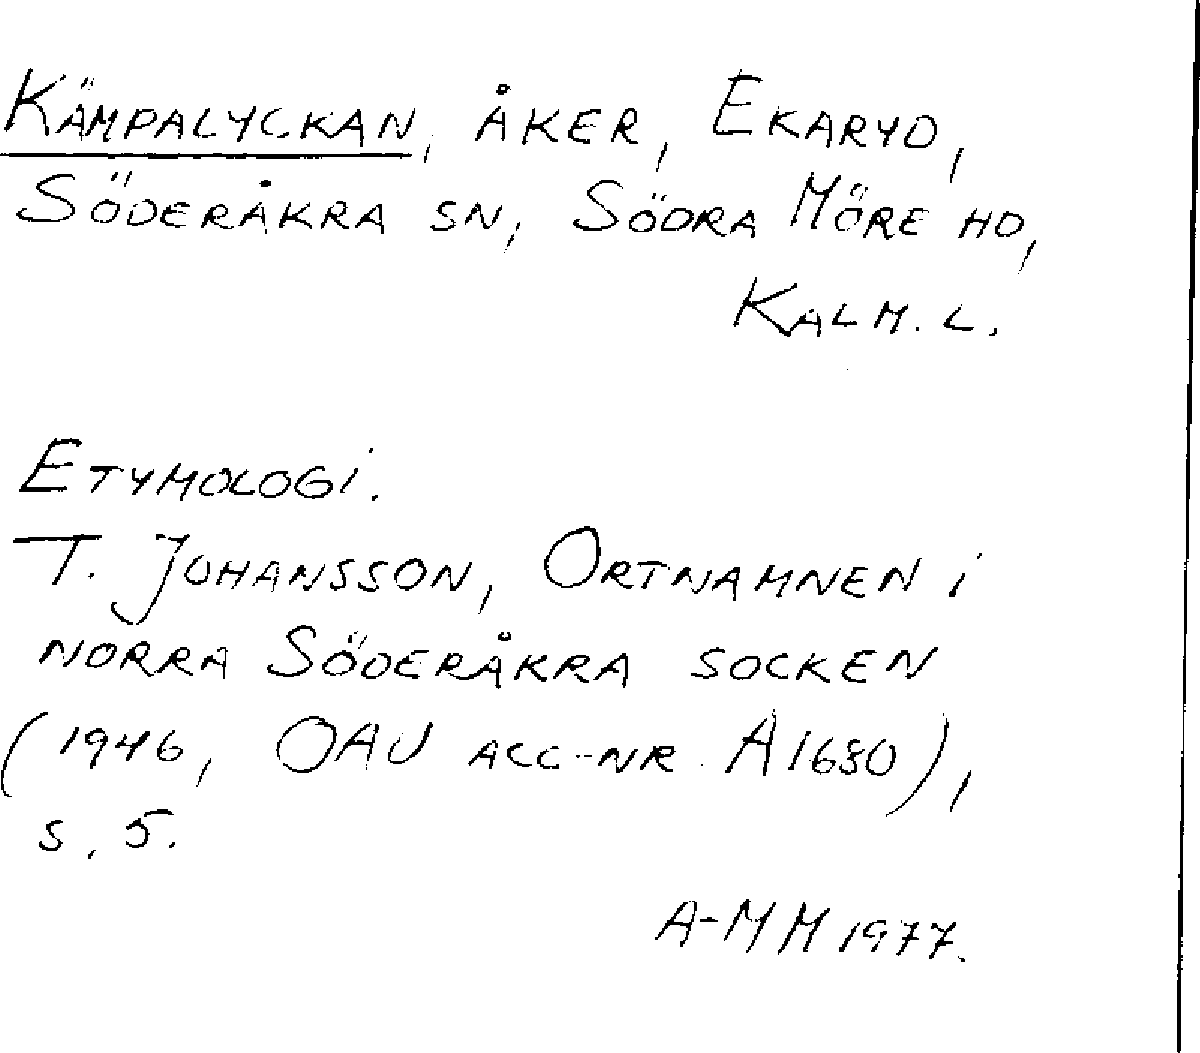 KÄMPALYCKAN, ÅKER, EKARYD,
SÖDERÅKRA SN, SÖDRA MÖRE HD,
KALM. L.
ETYMOLOGI.
T. JOHANSSON, ORTNAMNEN i
NORRA SÖDERÅKRA SOCKEN
(1946, OAU ACC-NR A1680),
S. 5.
A-MM 1977.